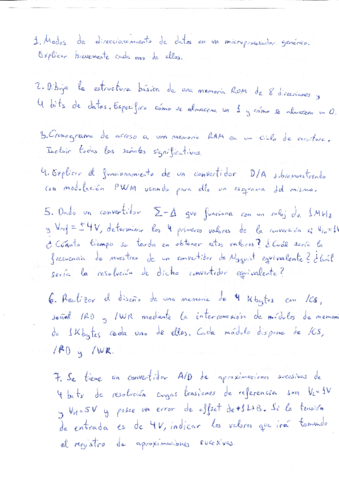 1. Modos de direccionamiento de datos en un microprocesador genérico.
Explicar brevemente cada uno de ellos.
2. Dibuja la estructura básica de una memoria ROM de 8 direcciones y
4 bits de datos. Especifica cómo se almacena un 1 y cómo se almacena un 0.
3. Cronograma de acceso a una memoria RAM en un ciclo de escritura.
Incluir todas las señales significativas.
4. Explicar el funcionamiento de un convertidor D/A sobremuestreado
con modulación PWM usando para ello un esquema del mismo.
5. Dado un convertidor Σ-Δ que funciona con un reloj de 1MHz
y Vref = ±4V, determinar los 4 primeros valores de la conversión si Vin=1V
¿Cuánto tiempo se tarda en obtener estos valores? ¿Cuál sería la
frecuencia de muestreo de un convertidor de Nyquist equivalente? ¿Cuál
sería la resolución de dicho convertidor equivalente?
6. Realizar el diseño de una memoria de 4 Kbytes con /CS,
señal /RD y /WR mediante la interconexión de módulos de memoria
de 1Kbytes cada uno de ellos. Cada módulo dispone de /CS,
/RD y /WR.
7. Se tiene un convertidor A/D de aproximaciones sucesivas de
4 bits de resolución cuyas tensiones de referencia son VL=1V
y VH=5V y posee un error de offset de +1LSB. Si la tensión
de entrada es de 4V, indicar los valores que irá tomando
el registro de aproximaciones sucesivas